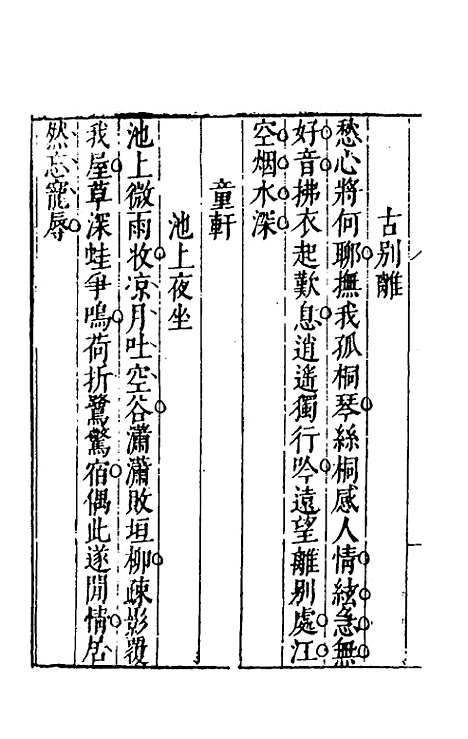 古别離
愁心將何聊撫我孤桐琴絲桐感人情絃急無
好音拂衣起歎息逍遙獨行吟遠望離别處江
空烟水深
童軒
池上夜坐
池上微雨收凉月吐空谷瀟瀟敗垣柳疎影覆
我屋草深蛙爭鳴荷折鷺驚宿偶此遂閒情
然忘寵辱